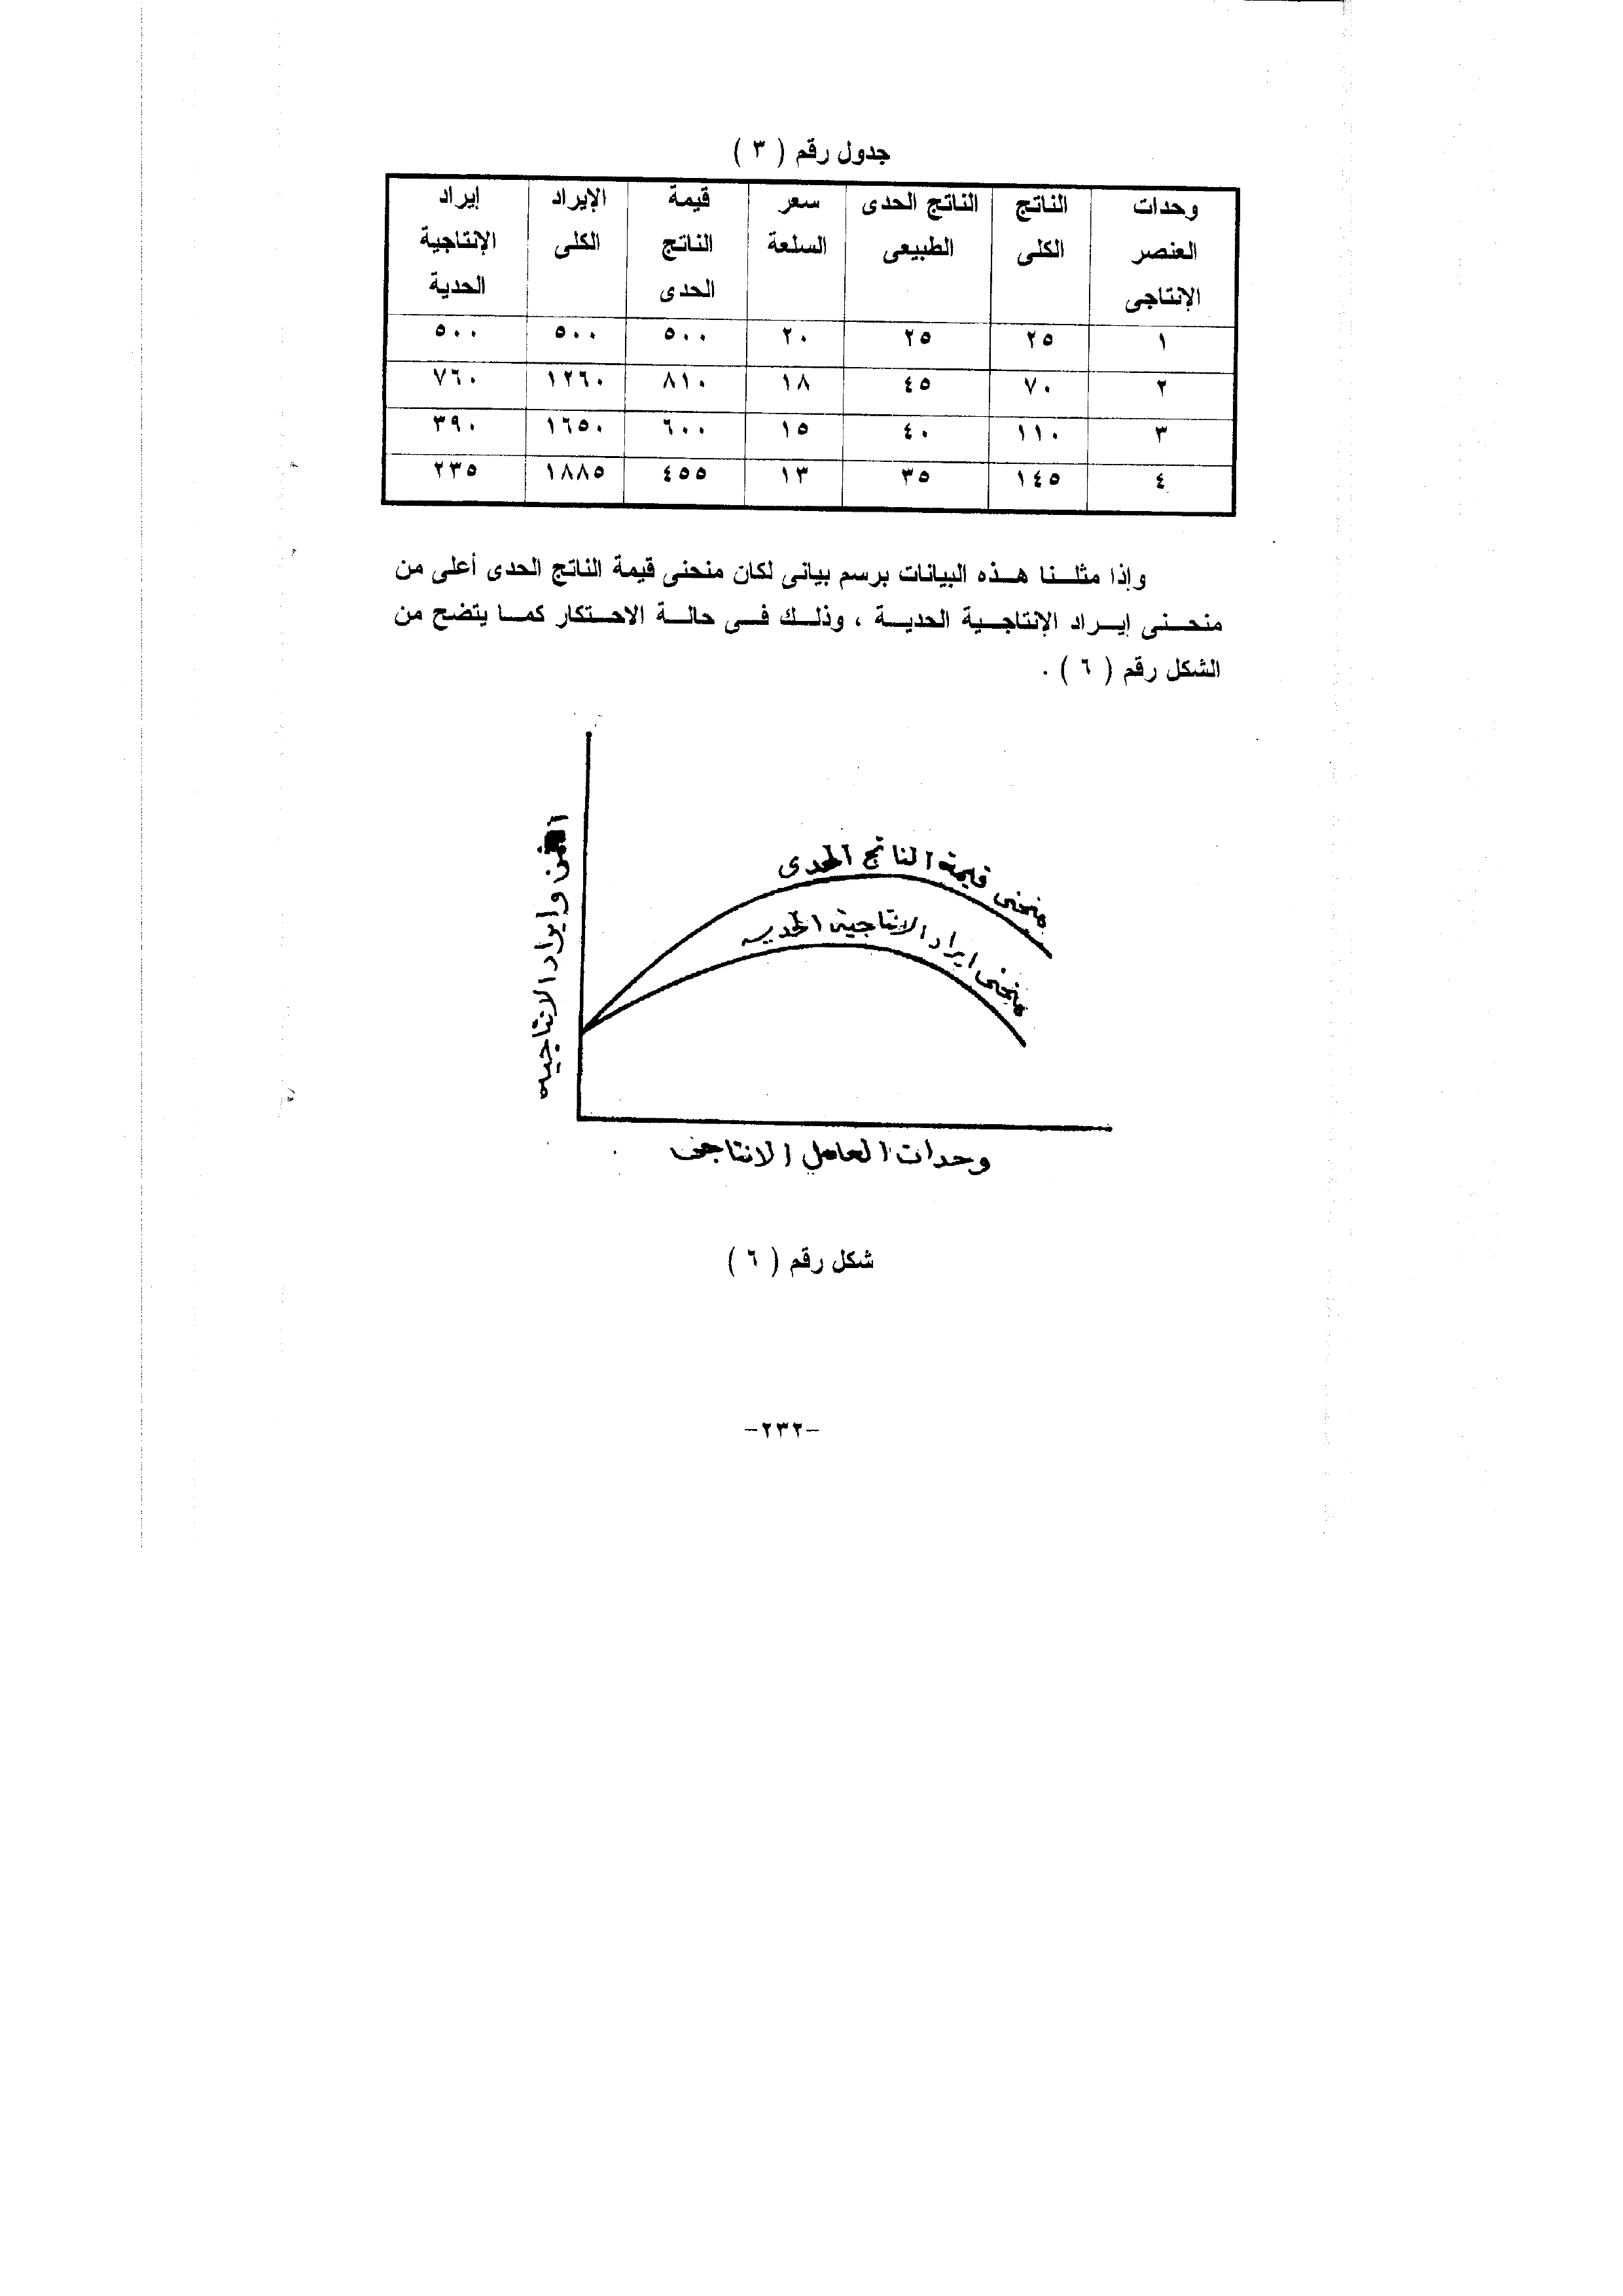 جدول رقم ( ٣ )
وحدات العنصر الإنتاجى | الناتج الكلى | الناتج الحدى الطبيعى | سعر السلعة | قيمة الناتج الحدى | الإيراد الكلى | إيراد الإنتاجية الحدية
١ | ٢٥ | ٢٥ | ٢٠ | ٥٠٠ | ٥٠٠ | ٥٠٠
٢ | ٧٠ | ٤٥ | ١٨ | ٨١٠ | ١٢٦٠ | ٧٦٠
٣ | ١١٠ | ٤٠ | ١٥ | ٦٠٠ | ١٦٥٠ | ٣٩٠
٤ | ١٤٥ | ٣٥ | ١٣ | ٤٥٥ | ١٨٨٥ | ٢٣٥
وإذا مثلنا هذه البيانات برسم بيانى لكان منحنى قيمة الناتج الحدى أعلى من
منحنى إيراد الإنتاجية الحدية ، وذلك فى حالة الاحتكار كما يتضح من
الشكل رقم ( ٦ ) .
منحنى قيمة الناتج الحدى
منحنى ايراد الانتاجية الحديه
وايراد الانتاجيه
وحدات العامل الانتاجى
شكل رقم ( ٦ )
-٢٣٢-